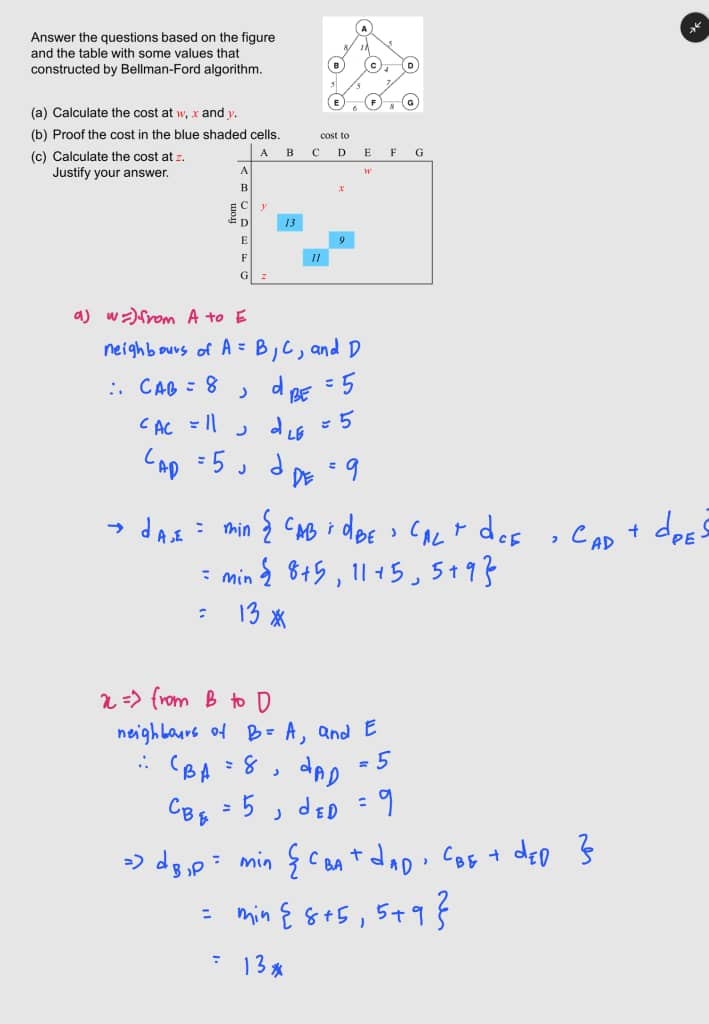 Answer the questions based on the figure
and the table with some values that
constructed by Bellman-Ford algorithm.
(a) Calculate the cost at w, x and y.
(b) Proof the cost in the blue shaded cells.
(c) Calculate the cost at z.
Justify your answer.
A
8 11 5
B C 4 D
5 5 7
E F G
6 8
cost to
A B C D E F G
from
A w
B x
C y
D 13
E 9
F 11
G z
a) w => from A to E
neighbours of A = B, C, and D
∴ CAB = 8 , dBE = 5
CAC = 11 , dCE = 5
CAD = 5 , dDE = 9
→ dA,E = min { CAB + dBE , CAC + dCE , CAD + dDE }
= min { 8+5 , 11+5 , 5+9 }
= 13
x => from B to D
neighbours of B = A, and E
∴ CBA = 8 , dAD = 5
CBE = 5 , dED = 9
=> dB,D = min { CBA + dAD , CBE + dED }
= min { 8+5 , 5+9 }
= 13